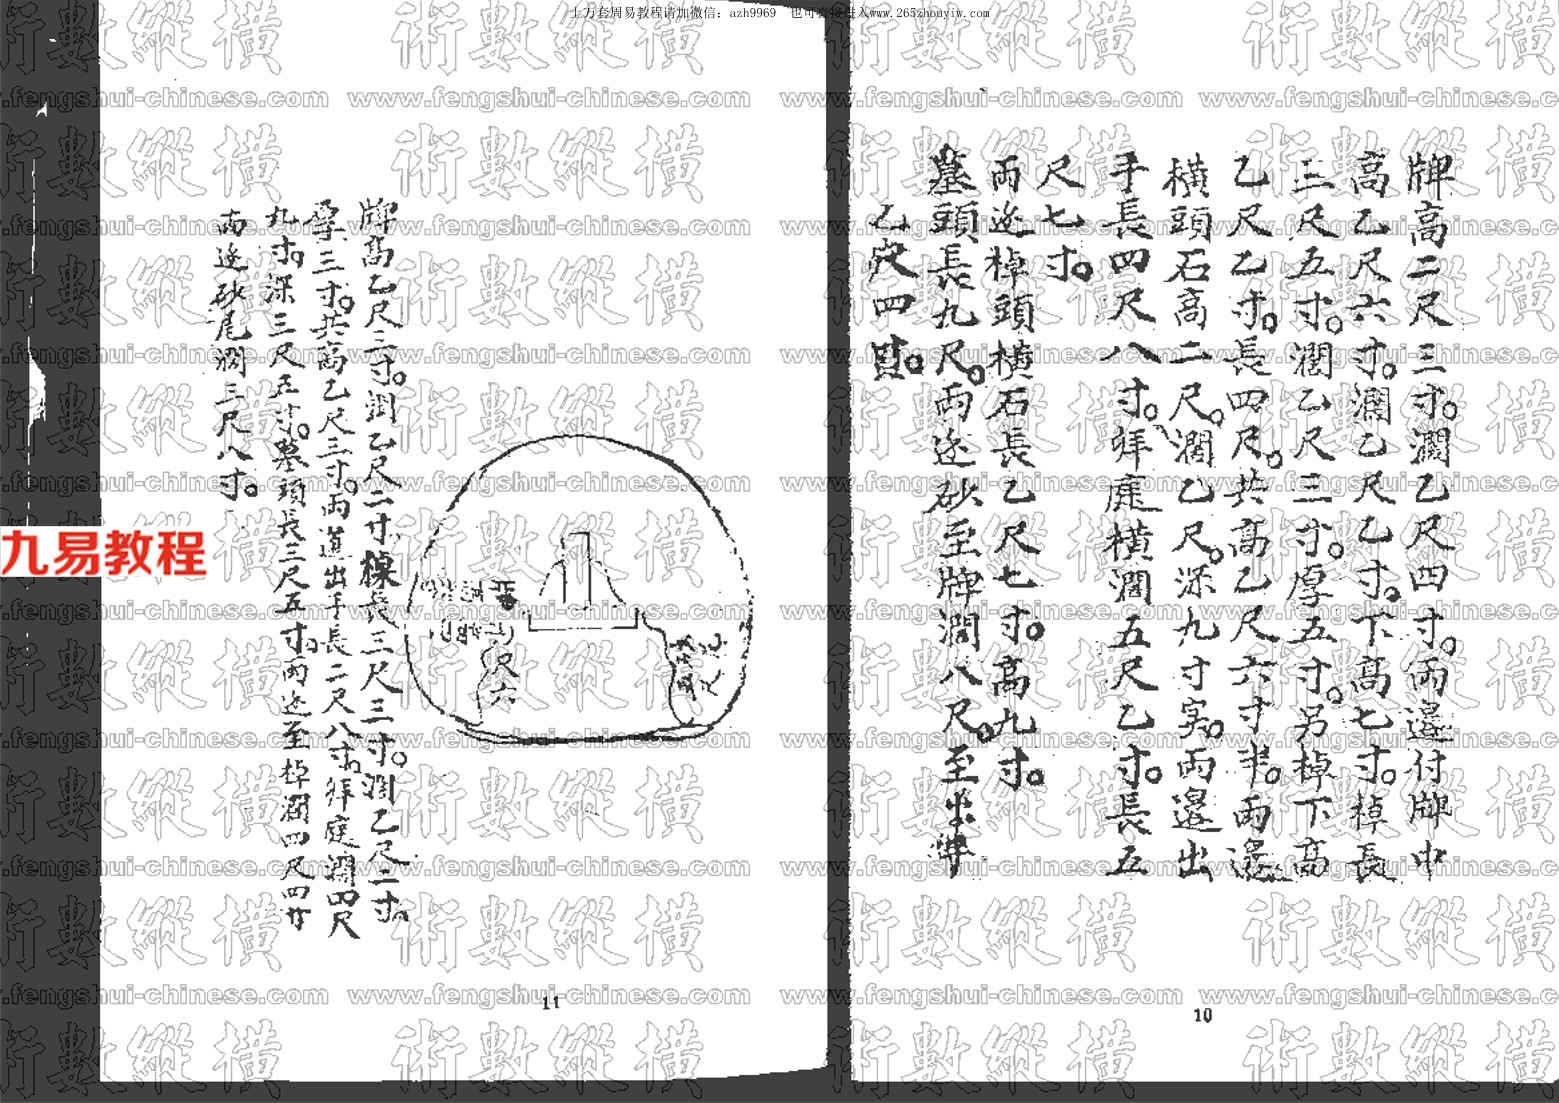 上万套周易教程请加微信：azh9969 也可直接进入www.265zhouyiw.com
術數縱橫
www.fengshui-chinese.com
九易教程
牌高二尺三寸。濶乙尺四寸。兩邊付牌中
高乙尺六寸。濶乙尺乙寸。下高七寸。棹長
三尺五寸。濶乙尺三寸。厚五寸。另棹下高
乙尺乙寸。長四尺。共高乙尺六寸半。兩邊
橫頭石高二尺。濶乙尺。深九寸。兩邊出
手長四尺八寸。拜庭橫濶五尺乙寸。長五
尺七寸。
兩邊棹頭橫石長乙尺七寸。高九寸。
墓頭長九尺。兩邊砂至牌濶八尺。至
乙穴四
10
牌高乙尺三寸。濶乙尺二寸。長三尺三寸。濶乙尺二寸。
三寸。共高乙尺三寸。兩邊出手長二尺八寸。拜庭濶四尺
九寸。深三尺五寸。墓頭長二尺五寸。兩邊至棹濶四尺四寸
兩邊砂尾濶三尺八寸。
11